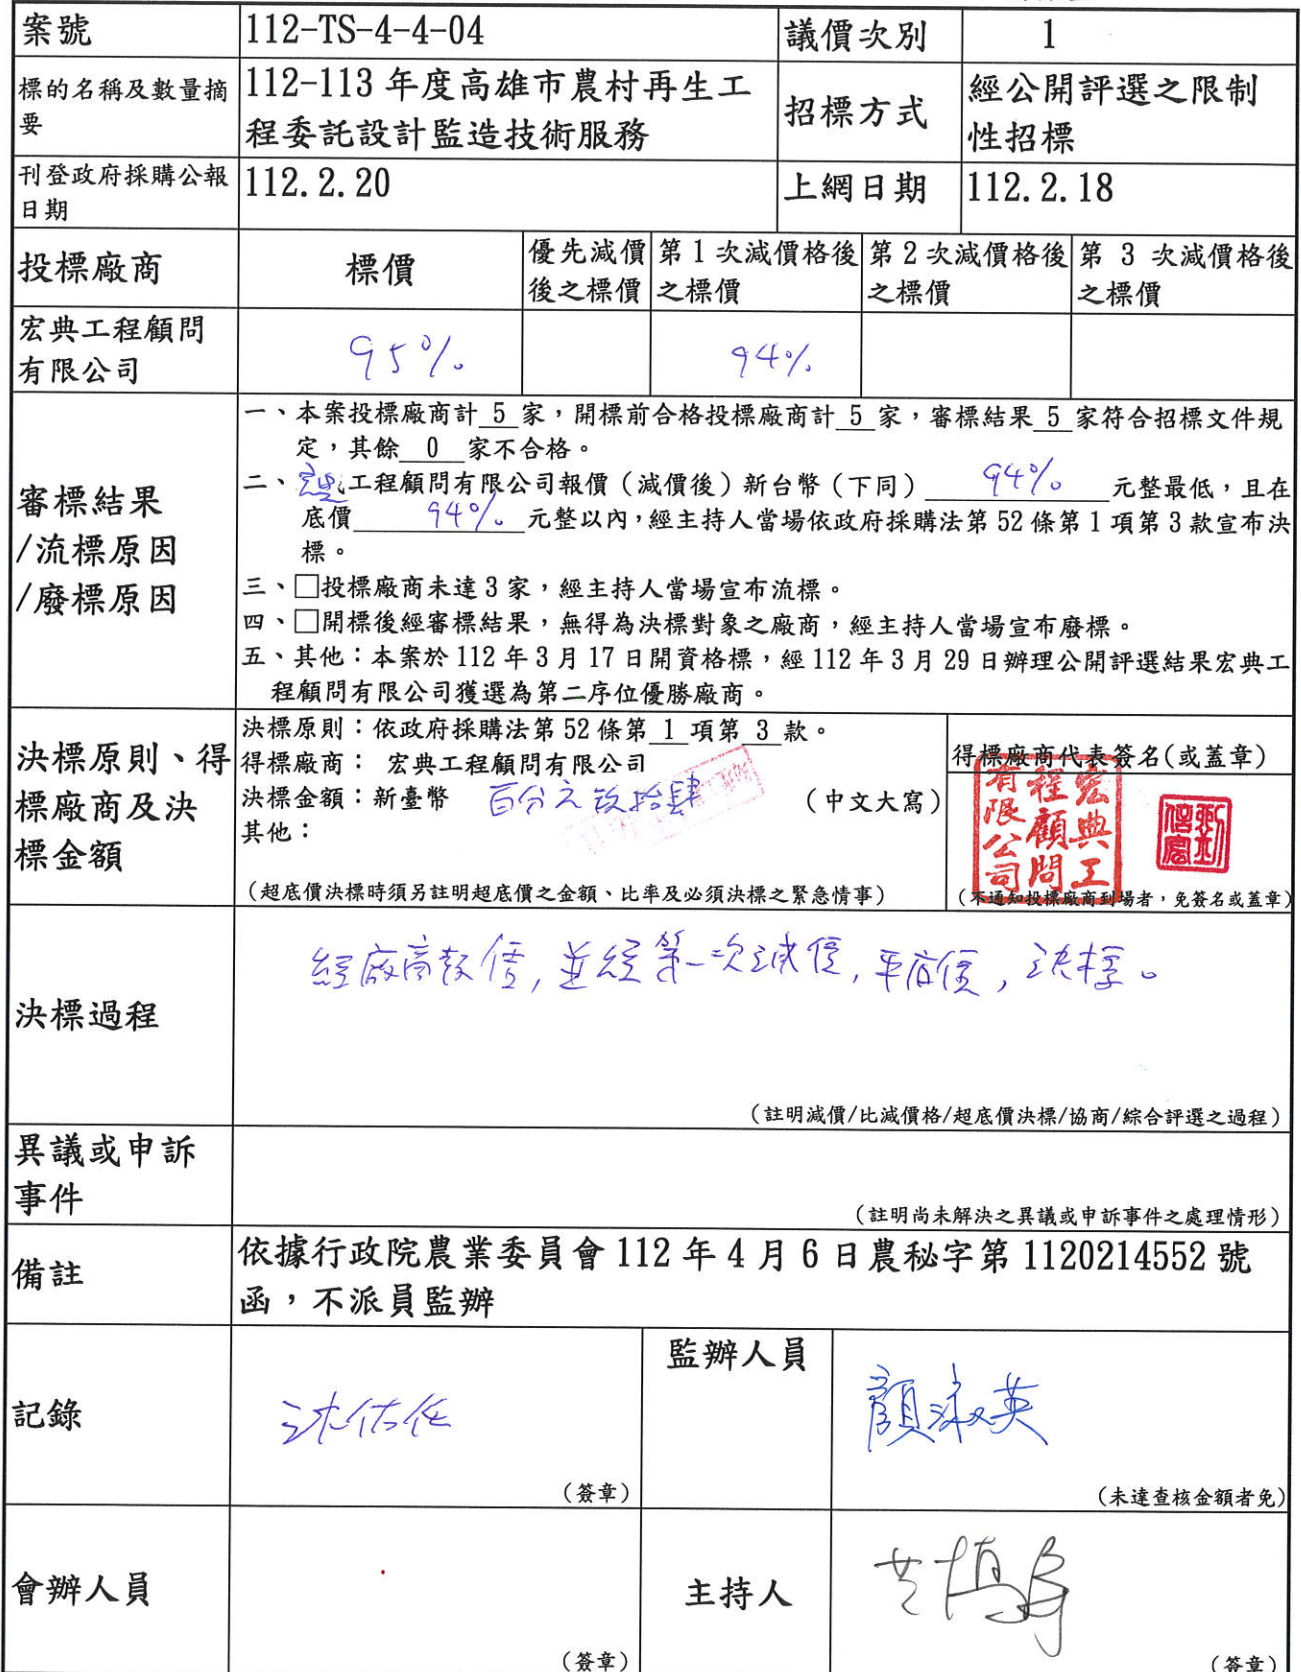 案號 112-TS-4-4-04 議價次別 1
標的名稱及數量摘要 112-113 年度高雄市農村再生工程委託設計監造技術服務 招標方式 經公開評選之限制性招標
刊登政府採購公報日期 112.2.20 上網日期 112.2.18
投標廠商 標價 優先減價後之標價 第 1 次減價格後之標價 第 2 次減價格後之標價 第 3 次減價格後之標價
宏典工程顧問有限公司 95% 94%
審標結果
/流標原因
/廢標原因
一、本案投標廠商計 5 家，開標前合格投標廠商計 5 家，審標結果 5 家符合招標文件規
定，其餘 0 家不合格。
二、宏典工程顧問有限公司報價（減價後）新台幣（下同） 94% 元整最低，且在
底價 94% 元整以內，經主持人當場依政府採購法第 52 條第 1 項第 3 款宣布決
標。
三、□投標廠商未達 3 家，經主持人當場宣布流標。
四、□開標後經審標結果，無得為決標對象之廠商，經主持人當場宣布廢標。
五、其他：本案於 112 年 3 月 17 日開資格標，經 112 年 3 月 29 日辦理公開評選結果宏典工
程顧問有限公司獲選為第二序位優勝廠商。
決標原則、得
標廠商及決
標金額
決標原則：依政府採購法第 52 條第 1 項第 3 款。
得標廠商： 宏典工程顧問有限公司
決標金額：新臺幣 百分之玖拾肆 （中文大寫）
其他：
（超底價決標時須另註明超底價之金額、比率及必須決標之緊急情事）
得標廠商代表簽名(或蓋章)
宏典工程顧問有限公司
（不通知投標廠商到場者，免簽名或蓋章）
決標過程
經廠商報價，並經第一次減價，平底價，決標。
（註明減價/比減價格/超底價決標/協商/綜合評選之過程）
異議或申訴
事件
（註明尚未解決之異議或申訴事件之處理情形）
備註
依據行政院農業委員會 112 年 4 月 6 日農秘字第 1120214552 號
函，不派員監辦
記錄
（簽章）
監辦人員
顏淑英
（未達查核金額者免）
會辦人員
（簽章）
主持人
（簽章）